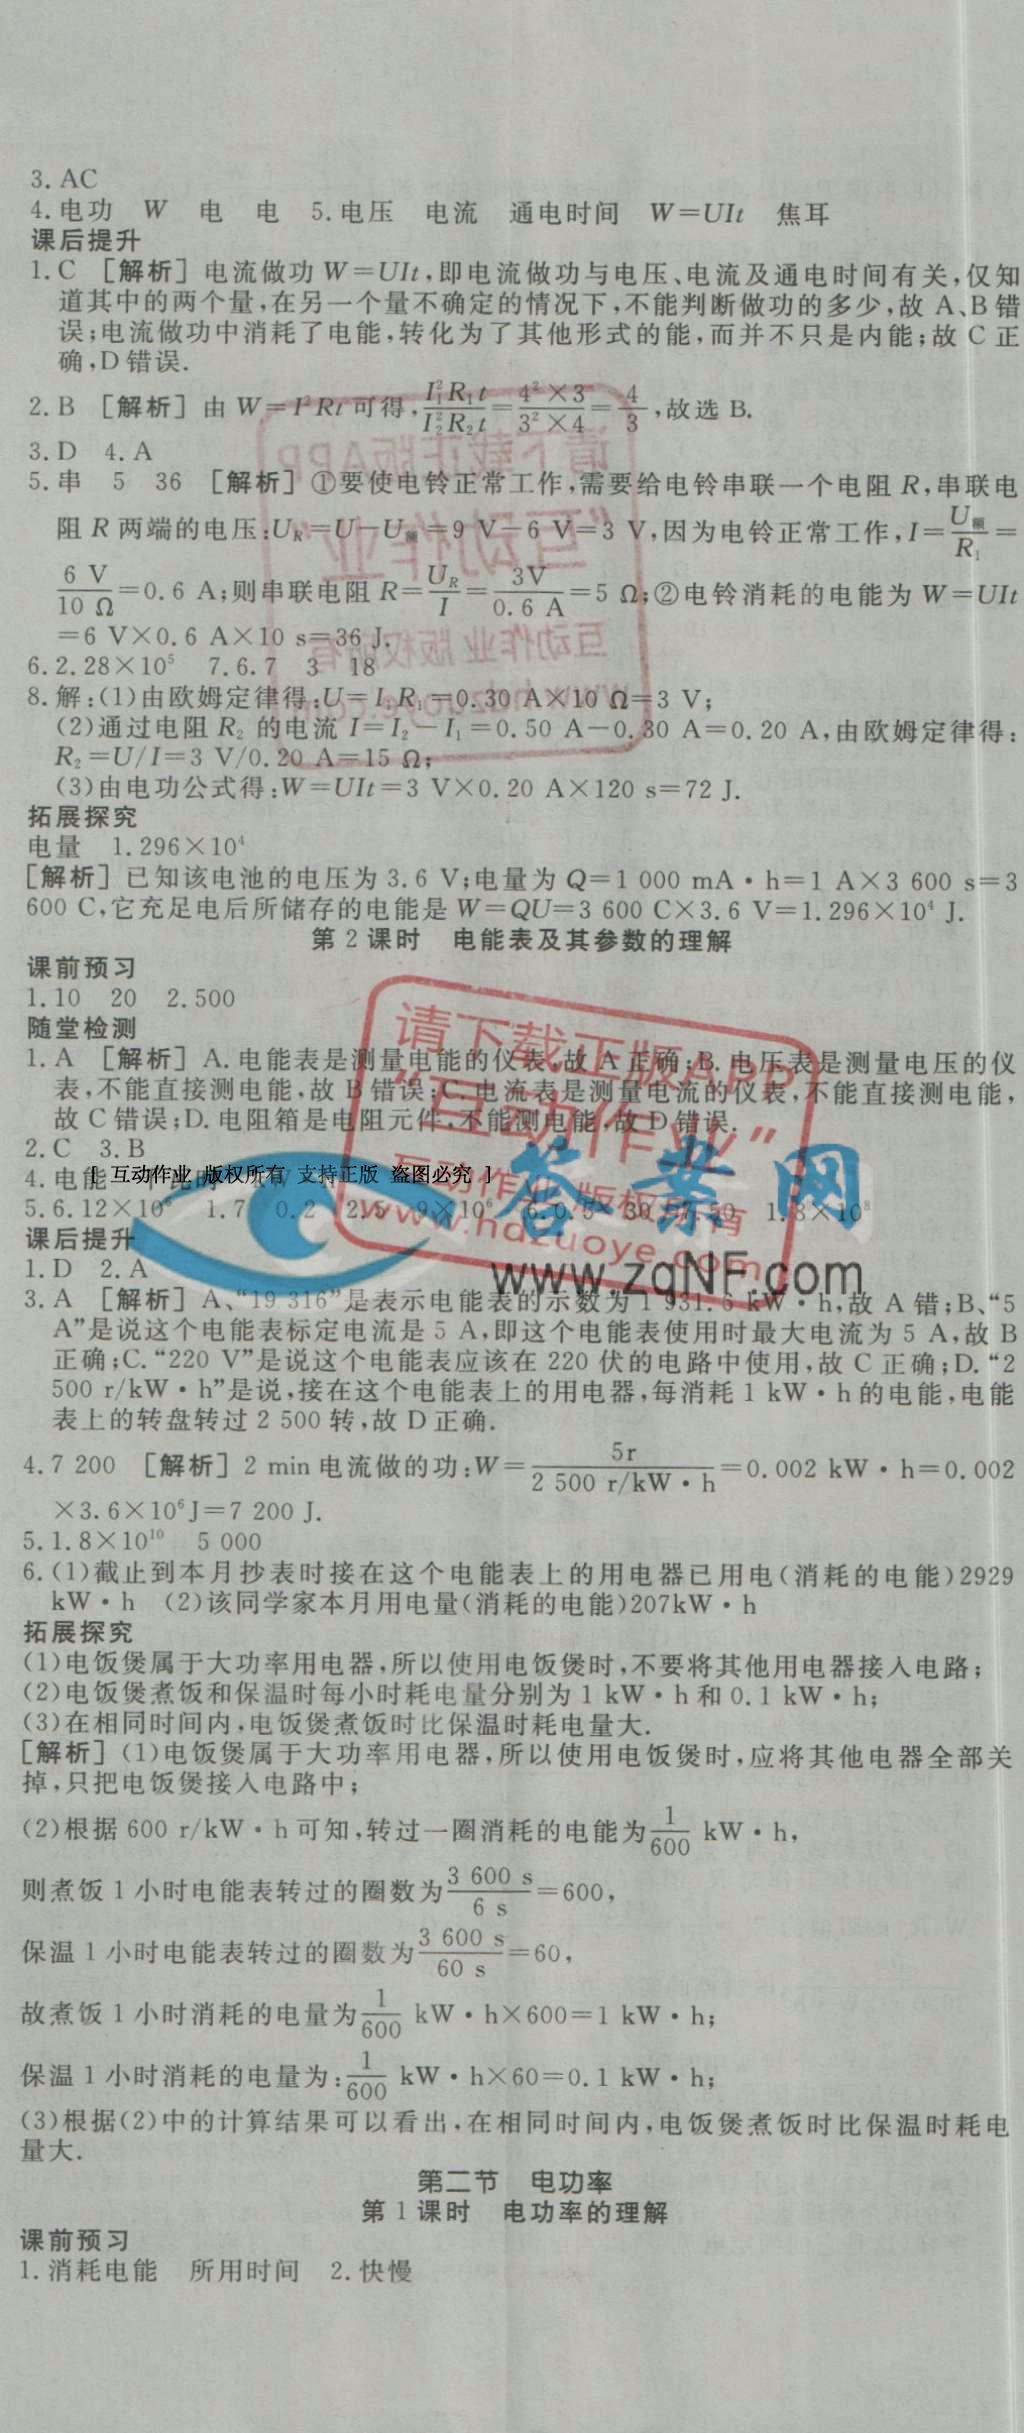 3. AC
4. 电功 W 电 电 5. 电压 电流 通电时间 W=UIt 焦耳
课后提升
1. C [解析] 电流做功 W=UIt,即电流做功与电压、电流及通电时间有关,仅知
道其中的两个量,在另一个量不确定的情况下,不能判断做功的多少,故 A、B 错
误;电流做功中消耗了电能,转化为了其他形式的能,而并不只是内能;故 C 正
确,D 错误.
2. B [解析] 由 W=I²Rt 可得, I₁²R₁t/I₂²R₂t = 4²×3/3²×4 = 4/3 ,故选 B.
3. D 4. A
5. 串 5 36 [解析] ①要使电铃正常工作,需要给电铃串联一个电阻 R,串联电
阻 R 两端的电压:U_R=U-U额=9 V-6 V=3 V,因为电铃正常工作,I=U额/R₁=
6 V/10 Ω=0.6 A;则串联电阻 R=U_R/I=3V/0.6 A=5 Ω;②电铃消耗的电能为 W=UIt
=6 V×0.6 A×10 s=36 J.
6. 2.28×10⁵ 7. 6.7 3 18
8. 解:(1)由欧姆定律得:U=I₁R₁=0.30 A×10 Ω=3 V;
(2)通过电阻 R₂ 的电流 I=I₂-I₁=0.50 A-0.30 A=0.20 A,由欧姆定律得:
R₂=U/I=3 V/0.20 A=15 Ω;
(3)由电功公式得:W=UIt=3 V×0.20 A×120 s=72 J.
拓展探究
电量 1.296×10⁴
[解析] 已知该电池的电压为 3.6 V;电量为 Q=1 000 mA·h=1 A×3 600 s=3
600 C,它充足电后所储存的电能是 W=QU=3 600 C×3.6 V=1.296×10⁴ J.
第 2 课时 电能表及其参数的理解
课前预习
1. 10 20 2. 500
随堂检测
1. A [解析] A. 电能表是测量电能的仪表,故 A 正确;B. 电压表是测量电压的仪
表,不能直接测电能,故 B 错误;C. 电流表是测量电流的仪表,不能直接测电能,
故 C 错误;D. 电阻箱是电阻元件,不能测电能,故 D 错误.
2. C 3. B
4. 电能
[ 互动作业 版权所有 支持正版 盗图必究 ]
5. 6.12×10⁶ 1.7 0.2 2.5 9×10⁶ 6. 0.5 30 7. 50 1.8×10⁸
课后提升
1. D 2. A
3. A [解析] A、“19 316”是表示电能表的示数为 1 931.6 kW·h,故 A 错;B、“5
A”是说这个电能表标定电流是 5 A,即这个电能表使用时最大电流为 5 A,故 B
正确;C. “220 V”是说这个电能表应该在 220 伏的电路中使用,故 C 正确;D. “2
500 r/kW·h”是说,接在这个电能表上的用电器,每消耗 1 kW·h 的电能,电能
表上的转盘转过 2 500 转,故 D 正确.
4. 7 200 [解析] 2 min 电流做的功:W=5r/2 500 r/kW·h=0.002 kW·h=0.002
×3.6×10⁶J=7 200 J.
5. 1.8×10¹⁰ 5 000
6. (1)截止到本月抄表时接在这个电能表上的用电器已用电(消耗的电能)2929
kW·h (2)该同学家本月用电量(消耗的电能)207kW·h
拓展探究
(1)电饭煲属于大功率用电器,所以使用电饭煲时,不要将其他用电器接入电路;
(2)电饭煲煮饭和保温时每小时耗电量分别为 1 kW·h 和 0.1 kW·h;
(3)在相同时间内,电饭煲煮饭时比保温时耗电量大.
[解析] (1)电饭煲属于大功率用电器,所以使用电饭煲时,应将其他电器全部关
掉,只把电饭煲接入电路中;
(2)根据 600 r/kW·h 可知,转过一圈消耗的电能为 1/600 kW·h,
则煮饭 1 小时电能表转过的圈数为 3 600 s/6 s=600,
保温 1 小时电能表转过的圈数为 3 600 s/60 s=60,
故煮饭 1 小时消耗的电量为 1/600 kW·h×600=1 kW·h;
保温 1 小时消耗的电量为: 1/600 kW·h×60=0.1 kW·h;
(3)根据(2)中的计算结果可以看出,在相同时间内,电饭煲煮饭时比保温时耗电
量大.
第二节 电功率
第 1 课时 电功率的理解
课前预习
1. 消耗电能 所用时间 2. 快慢
请下载正版APP
“互动作业”
互动作业 版权所有
www.hdzuoye.com
请下载正版APP
“互动作业”
互动作业 版权所有
www.hdzuoye.com
答案网
www.zqNF.com